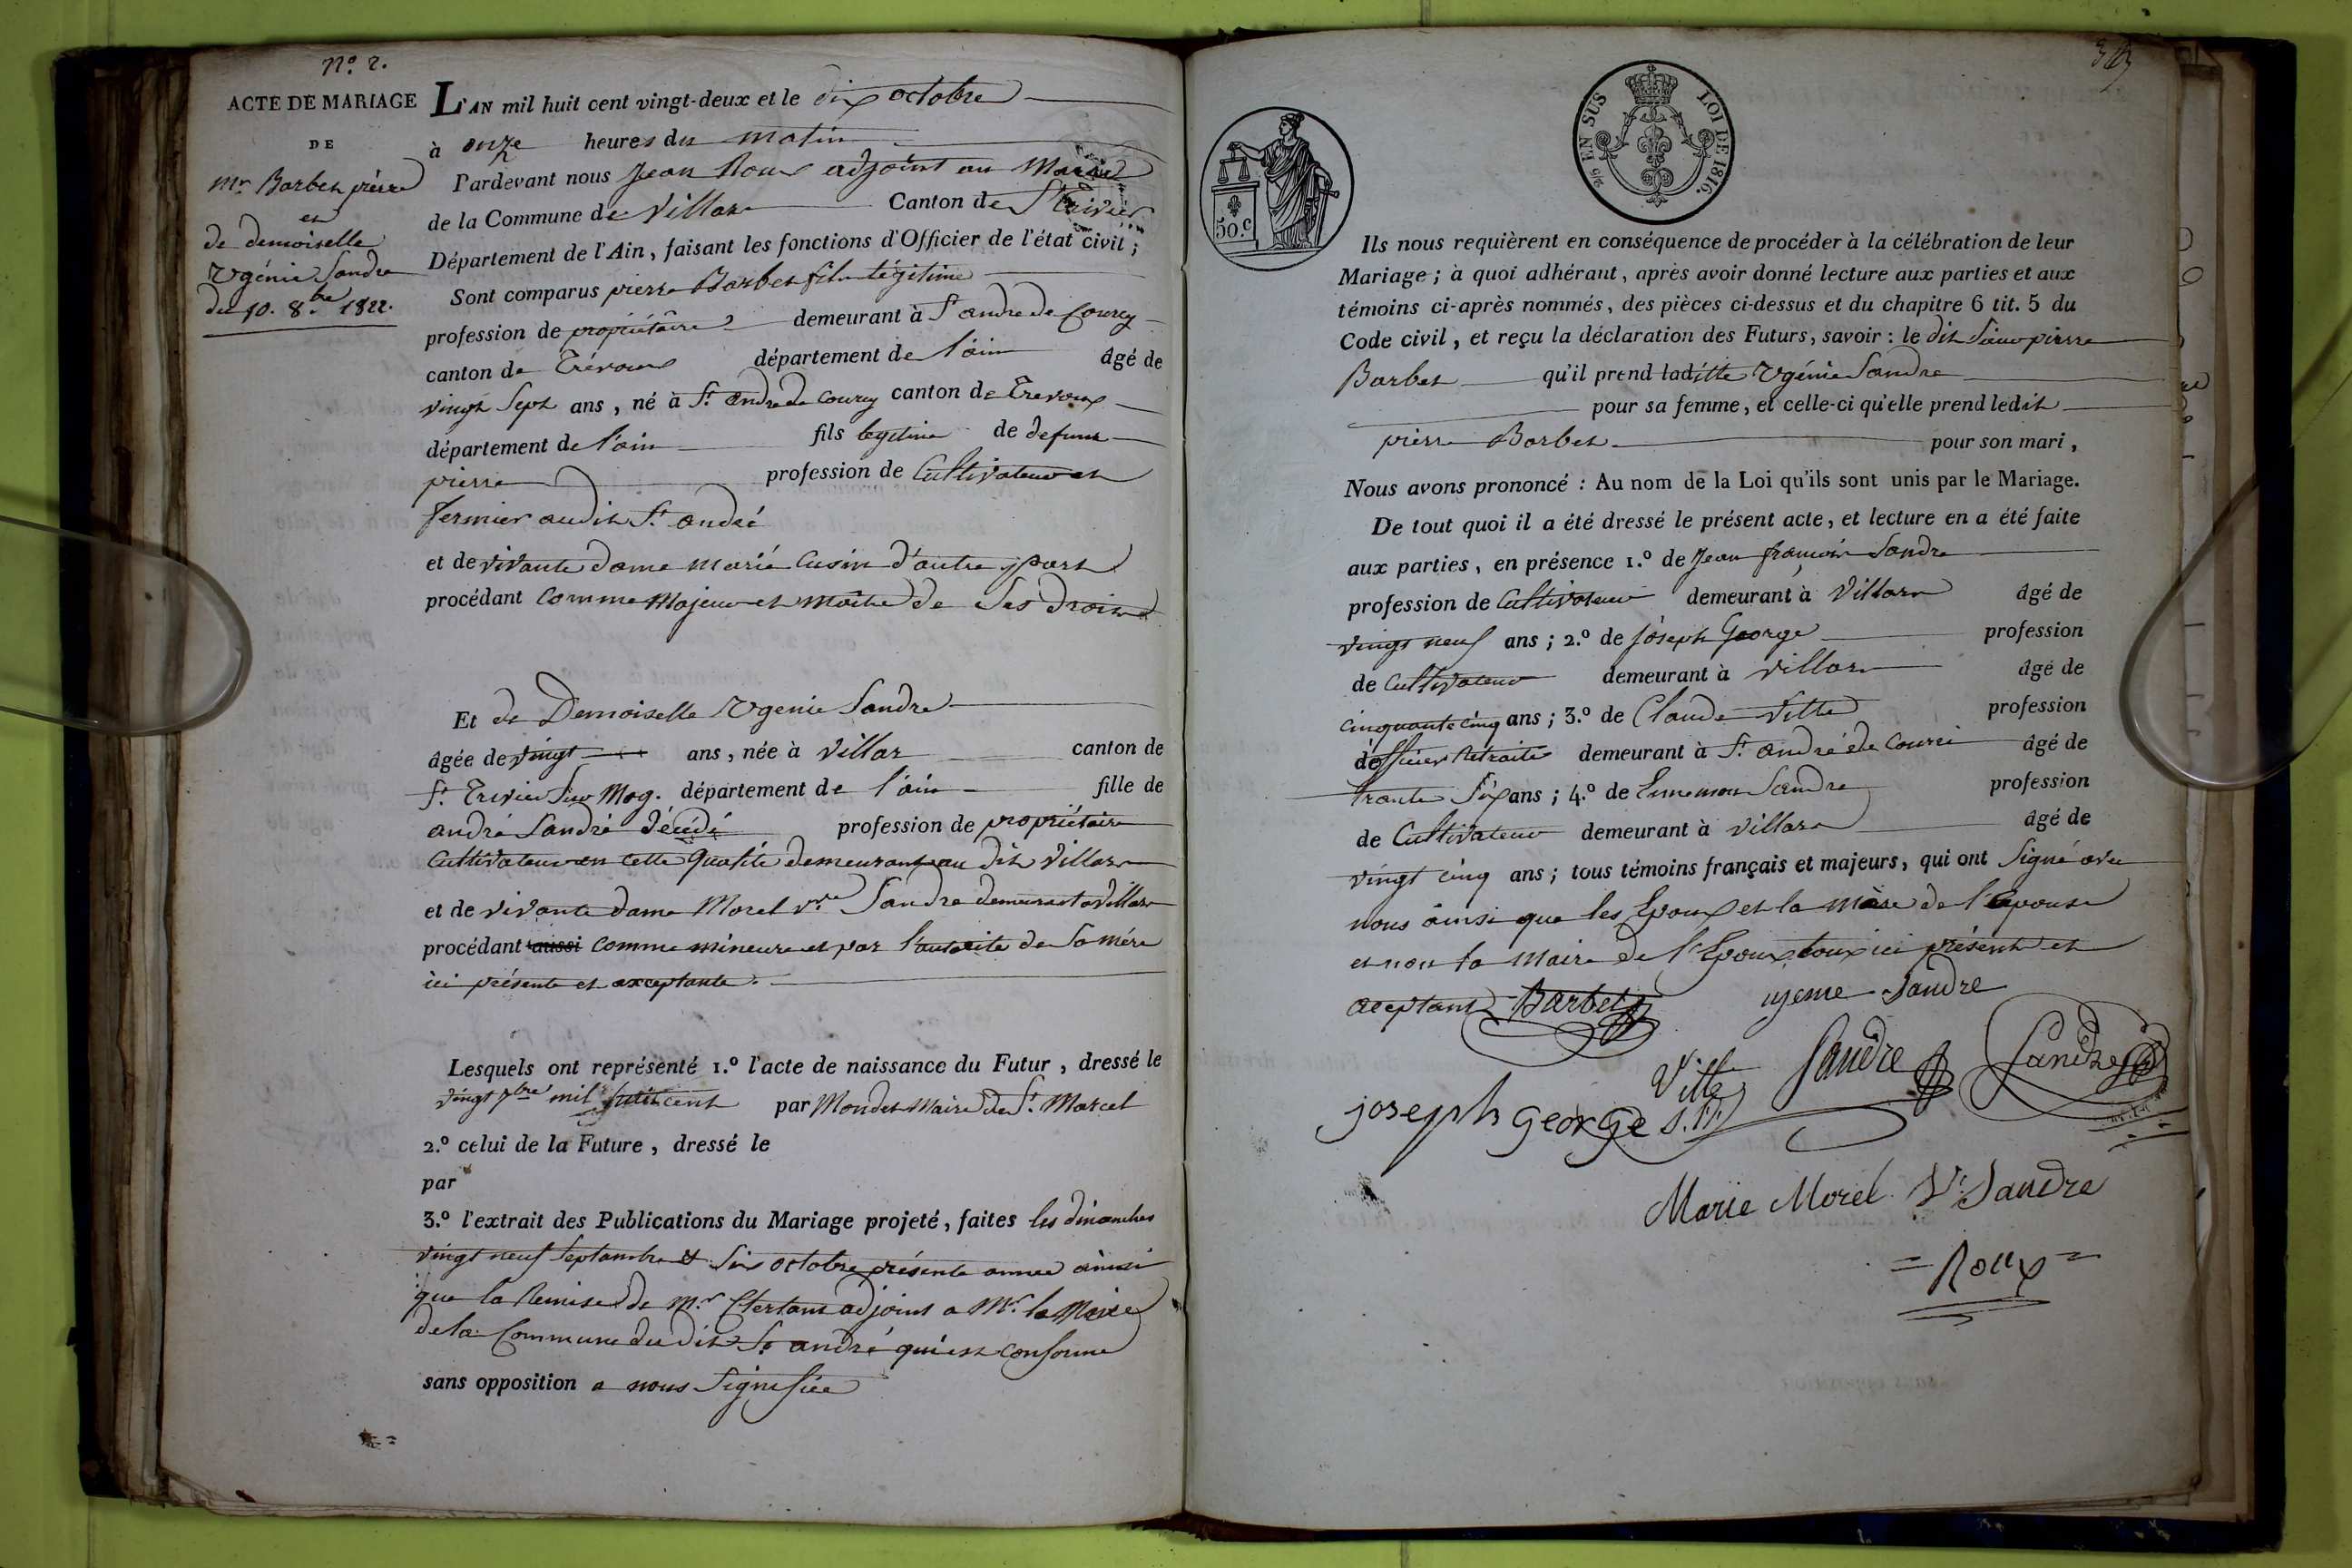 N.º 2.
ACTE DE MARIAGE
DE
Mr. Barbet pierre
et
de demoiselle
Ugénie Sandre
du 10. 8.bre 1822.
L'AN mil huit cent vingt-deux et le dix octobre
à onze heures du matin
Pardevant nous Jean Roux adjoint au Maire
de la Commune de Villars Canton de St Trivier
Département de l'Ain, faisant les fonctions d'Officier de l'état civil ;
Sont comparus pierre Barbet fils légitime
profession de propriétaire demeurant à St andré de Courcy
canton de Trévoux département de l'ain âgé de
vingt sept ans, né à St. andré de Courcy canton de Trevoux
département de l'ain fils legitime de defunt
pierre profession de Cultivateur et
fermier audit St. andré
et de vivante dame marie Cusin d'autre part
procédant Comme Majeur et maître de Ses droits
Et de Demoiselle Ugenie Sandre
âgée de vingt ans, née à Villar canton de
St. Trivier Sur Mog. département de l'ain fille de
andré Sandre décédé profession de propriétaire
Cultivateur en cette qualité demeurant au dit Villars
et de vivante dame Morel vve Sandre demeurant a Villars
procédant aussi Comme mineure et par l'autorité de Sa mère
ici présente et axceptante.
Lesquels ont représenté 1.º l'acte de naissance du Futur, dressé le
vingt 7bre mil huit cent par Mondet Maire de St. Marcel
2.º celui de la Future, dressé le
par
3.º l'extrait des Publications du Mariage projeté, faites les dimanches
vingt neuf Septambre et Six octobre présente année ainsi
que la Remise de Mr. adjoint a Mr. le Maire
de la Commune du dit St. andré qui est conforme
sans opposition a nous Signifiée
50.c
EN SUS LOI DE 1816.
Ils nous requièrent en conséquence de procéder à la célébration de leur
Mariage ; à quoi adhérant, après avoir donné lecture aux parties et aux
témoins ci-après nommés, des pièces ci-dessus et du chapitre 6 tit. 5 du
Code civil, et reçu la déclaration des Futurs, savoir : le dit Sieur pierre
Barbet qu'il prend ladite Ugénie Sandre
pour sa femme, et celle-ci qu'elle prend ledit
pierre Barbet pour son mari,
Nous avons prononcé : Au nom de la Loi qu'ils sont unis par le Mariage.
De tout quoi il a été dressé le présent acte, et lecture en a été faite
aux parties, en présence 1.º de Jean françois Sandre
profession de Cultivateur demeurant à Villars âgé de
vingt neuf ans ; 2.º de Joseph George profession
de Cultivateur demeurant à Villars âgé de
cinquante cinq ans ; 3.º de Claude Ville profession
d'officier Retraité demeurant à St. andré de Courci âgé de
trante Six ans ; 4.º de Sandre profession
de Cultivateur demeurant à Villars âgé de
vingt cinq ans ; tous témoins français et majeurs, qui ont Signé avec
nous ainsi que les Epoux et la Mère de l'epouse
et non la Maire de l'Epoux toux ici présent et
aceptant Barbet ugenie Sandre
Ville Sandre Sandre
joseph george
Marie Morel Ve Sandre
= Roux =